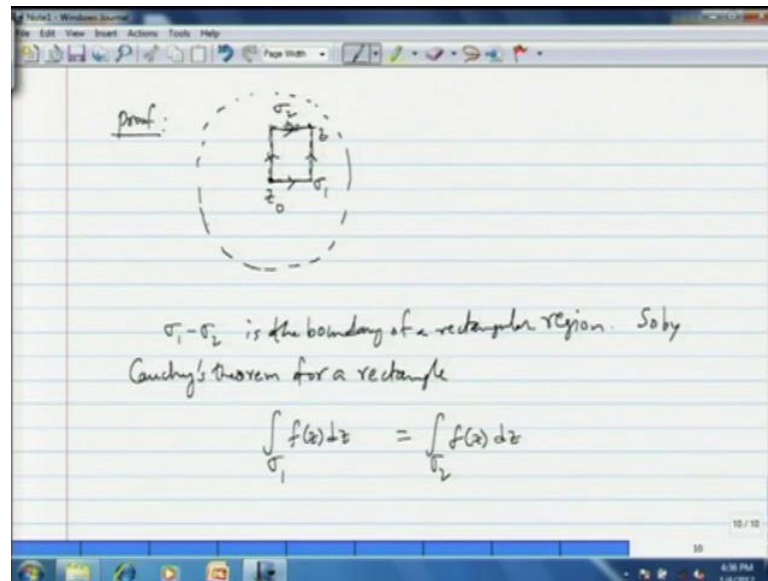 Note1 - Windows Journal
File Edit View Insert Actions Tools Help
Page Width
proof:
σ₂
z
z₀
σ₁
σ₁-σ₂ is the boundary of a rectangular region. So by
Cauchy's theorem for a rectangle
∫σ₁ f(z)dz = ∫σ₂ f(z)dz
10 / 10
10
6:36 PM